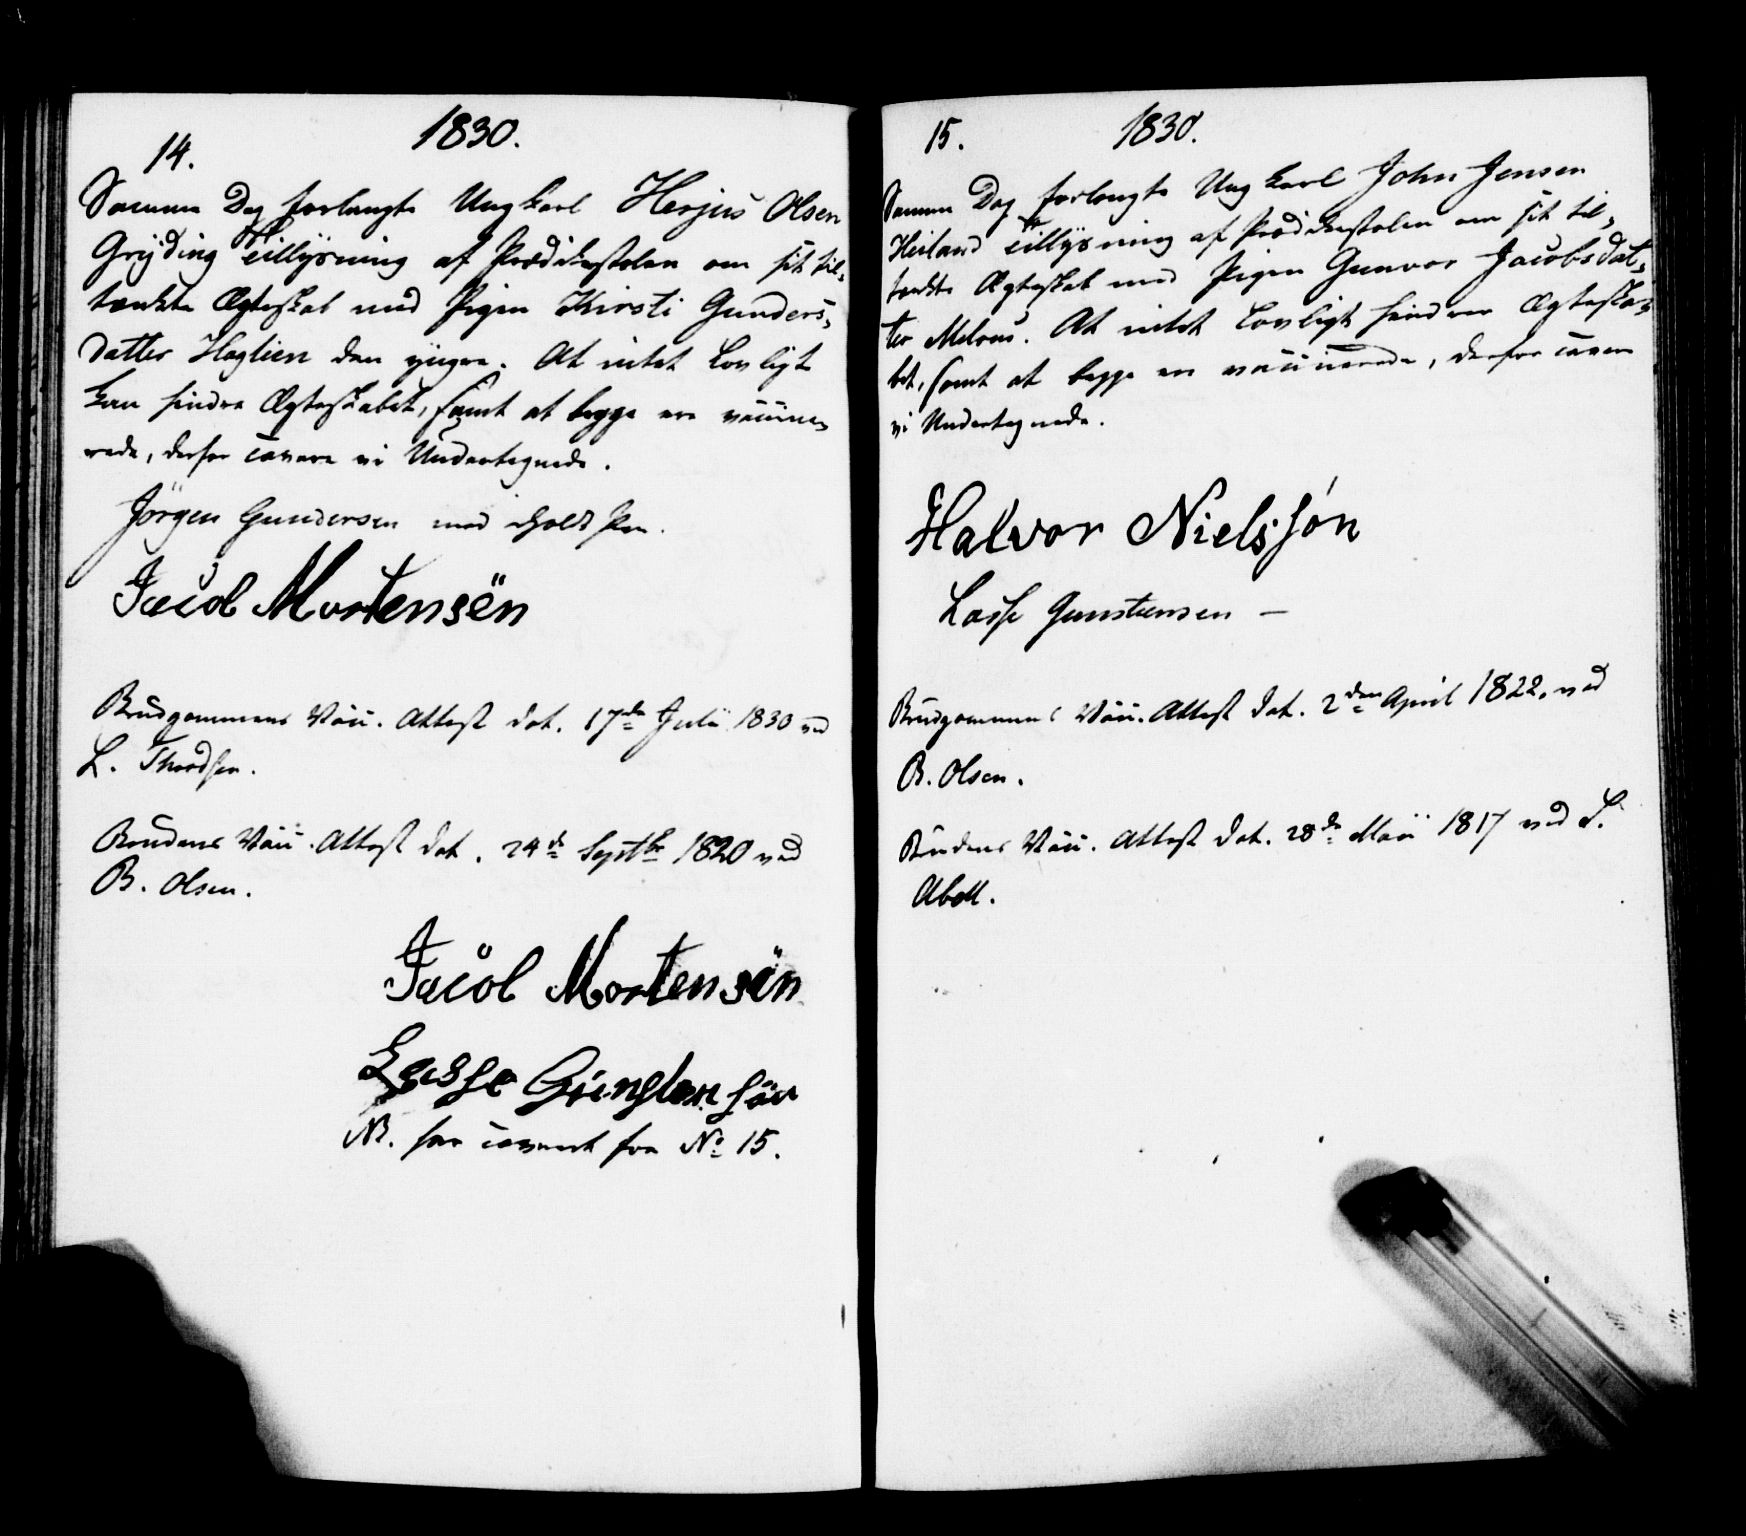 1830.
14.
Samme Dag forlangte Ungkarl Herjus Olsen
Gryding Tillysning af Prædikestolen om sit til-
tænkte Ægteskab med Pigen Kirsti Gunders-
datter Hoglien den yngre. At intet Lovligt
kan hindre Ægteskabet, samt at begge ere vaccine-
rede, derfor cavere vi Undertegnede.
Jörgen Gundersen med holdt Pen.
Jacob Mortensen
Brudgommens Vacc. Attest dat. 17de Julii 1830 ved
L. Thordsen.
Brudens Vacc. Attest dat. 24de Septbr 1820 ved
B. Olsen.
Jacob Mortensen
Lasse Gunstensen
NB. har caveret for No 15.
1830.
15.
Samme Dag forlangte Ungkarl John Jensen
Heiland Tillysning af Prædikestolen om sit til-
tænkte Ægteskab med Pigen Gunvor Jacobsdat-
ter Melaas. At intet Lovligt hindrer Ægteska-
bet, samt at begge ere vaccinerede, derfor cavere
vi Undertegnede.
Halvor Nielssön
Lasse Gunstensen —
Brudgommens Vacc. Attest dat. 2den April 1822, ved
B. Olsen.
Brudens Vacc. Attest dat. 28de Maii 1817 ved S.
Abell.